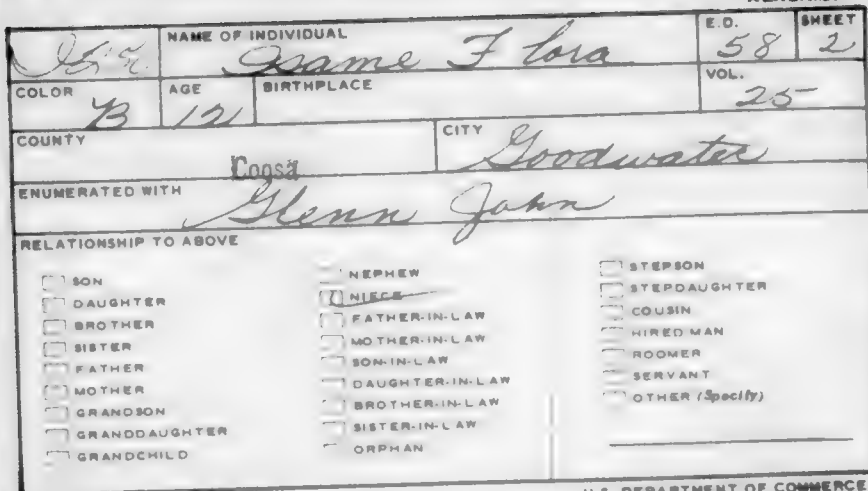 NAME OF INDIVIDUAL E.D. SHEET
Osame Flora 58 2
COLOR AGE BIRTHPLACE VOL.
B 12 25
COUNTY CITY
Coosa Goodwater
ENUMERATED WITH
Glenn John
RELATIONSHIP TO ABOVE
SON
DAUGHTER
BROTHER
SISTER
FATHER
MOTHER
GRANDSON
GRANDDAUGHTER
GRANDCHILD
NEPHEW
NIECE
FATHER-IN-LAW
MOTHER-IN-LAW
SON-IN-LAW
DAUGHTER-IN-LAW
BROTHER-IN-LAW
SISTER-IN-LAW
ORPHAN
STEPSON
STEPDAUGHTER
COUSIN
HIRED MAN
ROOMER
SERVANT
OTHER (Specify)
U.S. DEPARTMENT OF COMMERCE